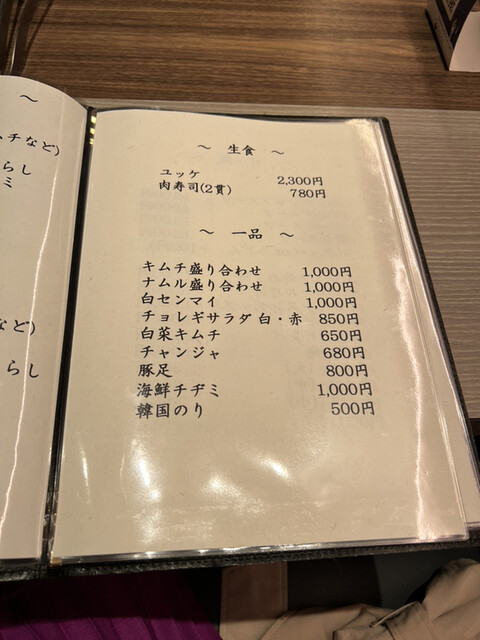 ～
チなど)
らし
ミ
など)
らし
～ 生食 ～
ユッケ 2,300円
肉寿司(2貫) 780円
～ 一品 ～
キムチ盛り合わせ 1,000円
ナムル盛り合わせ 1,000円
白センマイ 1,000円
チョレギサラダ 白・赤 850円
白菜キムチ 650円
チャンジャ 680円
豚足 800円
海鮮チヂミ 1,000円
韓国のり 500円